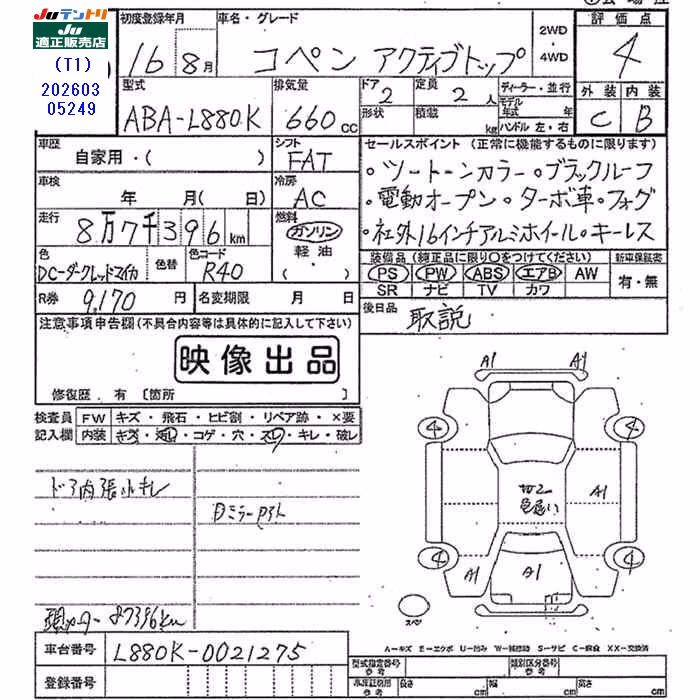 Juテントリ
Ju 適正販売店
(T1)
202603
05249
初度登録年月
16 8月
車名・グレード
コペン アクティブトップ
2WD
4WD
評価点
4
外装 内装
C B
型式
ABA-L880K
排気量
660cc
ドア 2
形状
定員 2人
積載 kg
ディーラー・並行
モデル年式 年
ハンドル 左・右
車歴
自家用・( )
シフト
FAT
車検
年 月( 日)
冷房
AC
走行
8万7千396km
燃料
ガソリン
軽油
・( )
色
DC-ダークレッドマイカ
色替
色コード
R40
R券 9,170円
名変期限 月 日
セールスポイント (正常に機能するものに限ります)
・ツートーンカラー・ブラックルーフ
・電動オープン・ターボ車・フォグ
・社外16インチアルミホイール・キーレス
装備品 (純正品に限り○をつけてください)
新車保証書
PS PW ABS エアB AW
SR ナビ TV カワ
有・無
後日品
取説
注意事項申告欄(不具合内容等は具体的に記入して下さい)
映像出品
修復歴. 有 〔箇所 〕
検査員記入欄
FW キズ・飛石・ヒビ割・リペア跡・×要
内装 キズ・汚レ・コゲ・穴・スレ・キレ・破レ
ドア内張小キレ
DミラーPタト
現メーター 87396km
A1 A1
4 4
A1
切2
色違い
4 4
A1 A1
スペア
A-キズ E-エクボ U-凹み W-補修跡 S-サビ C-腐食 XX-交換済
車台番号 L880K-0021275
登録番号
型式指定番号 参考
類別区分番号 参考
車庫証明用 参考
長さ cm
幅 cm
高さ cm